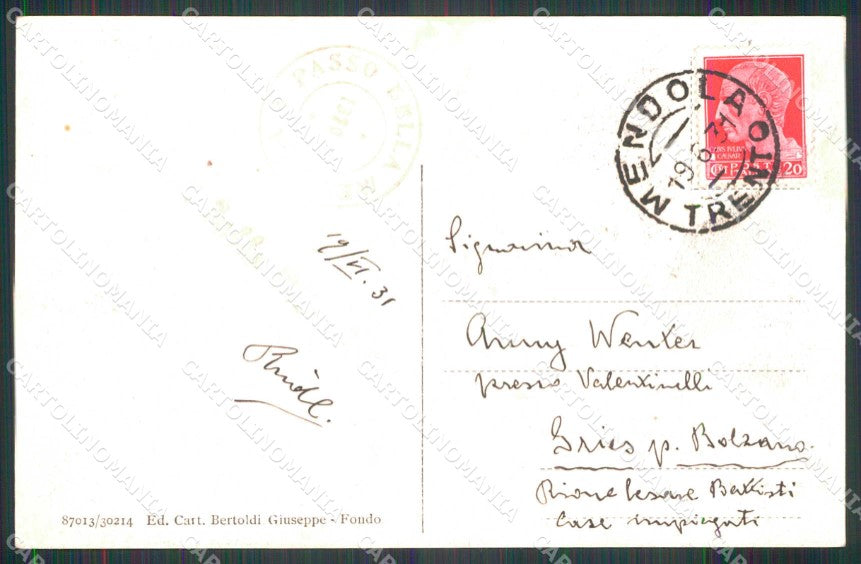 PASSO DELLA
MENDOLA
19.6.31
TRENTO
CESARE
20
19/VI.31
Signorina
Anny Wenter
presso Valentinelli
Gries p. Bolzano.
Rione Cesare Battisti
Case impiegati
87013/30214 Ed. Cart. Bertoldi Giuseppe - Fondo
CARTOLINOMANIA